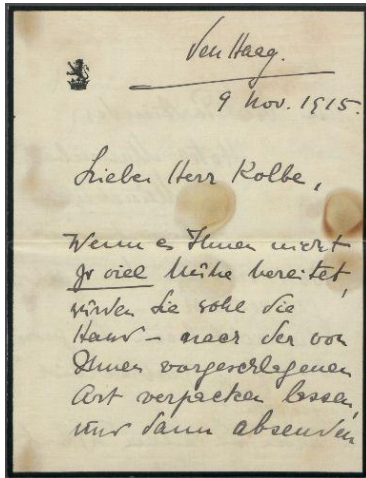 Den Haag.
9 Nov. 1915.
Lieber Herr Kolbe,
Wenn es Ihnen nicht
zu viel Mühe bereitet,
würden Sie wohl die
Hand – nach der von
Ihnen vorgeschlagenen
Art verpacken lassen,
und dann absenden